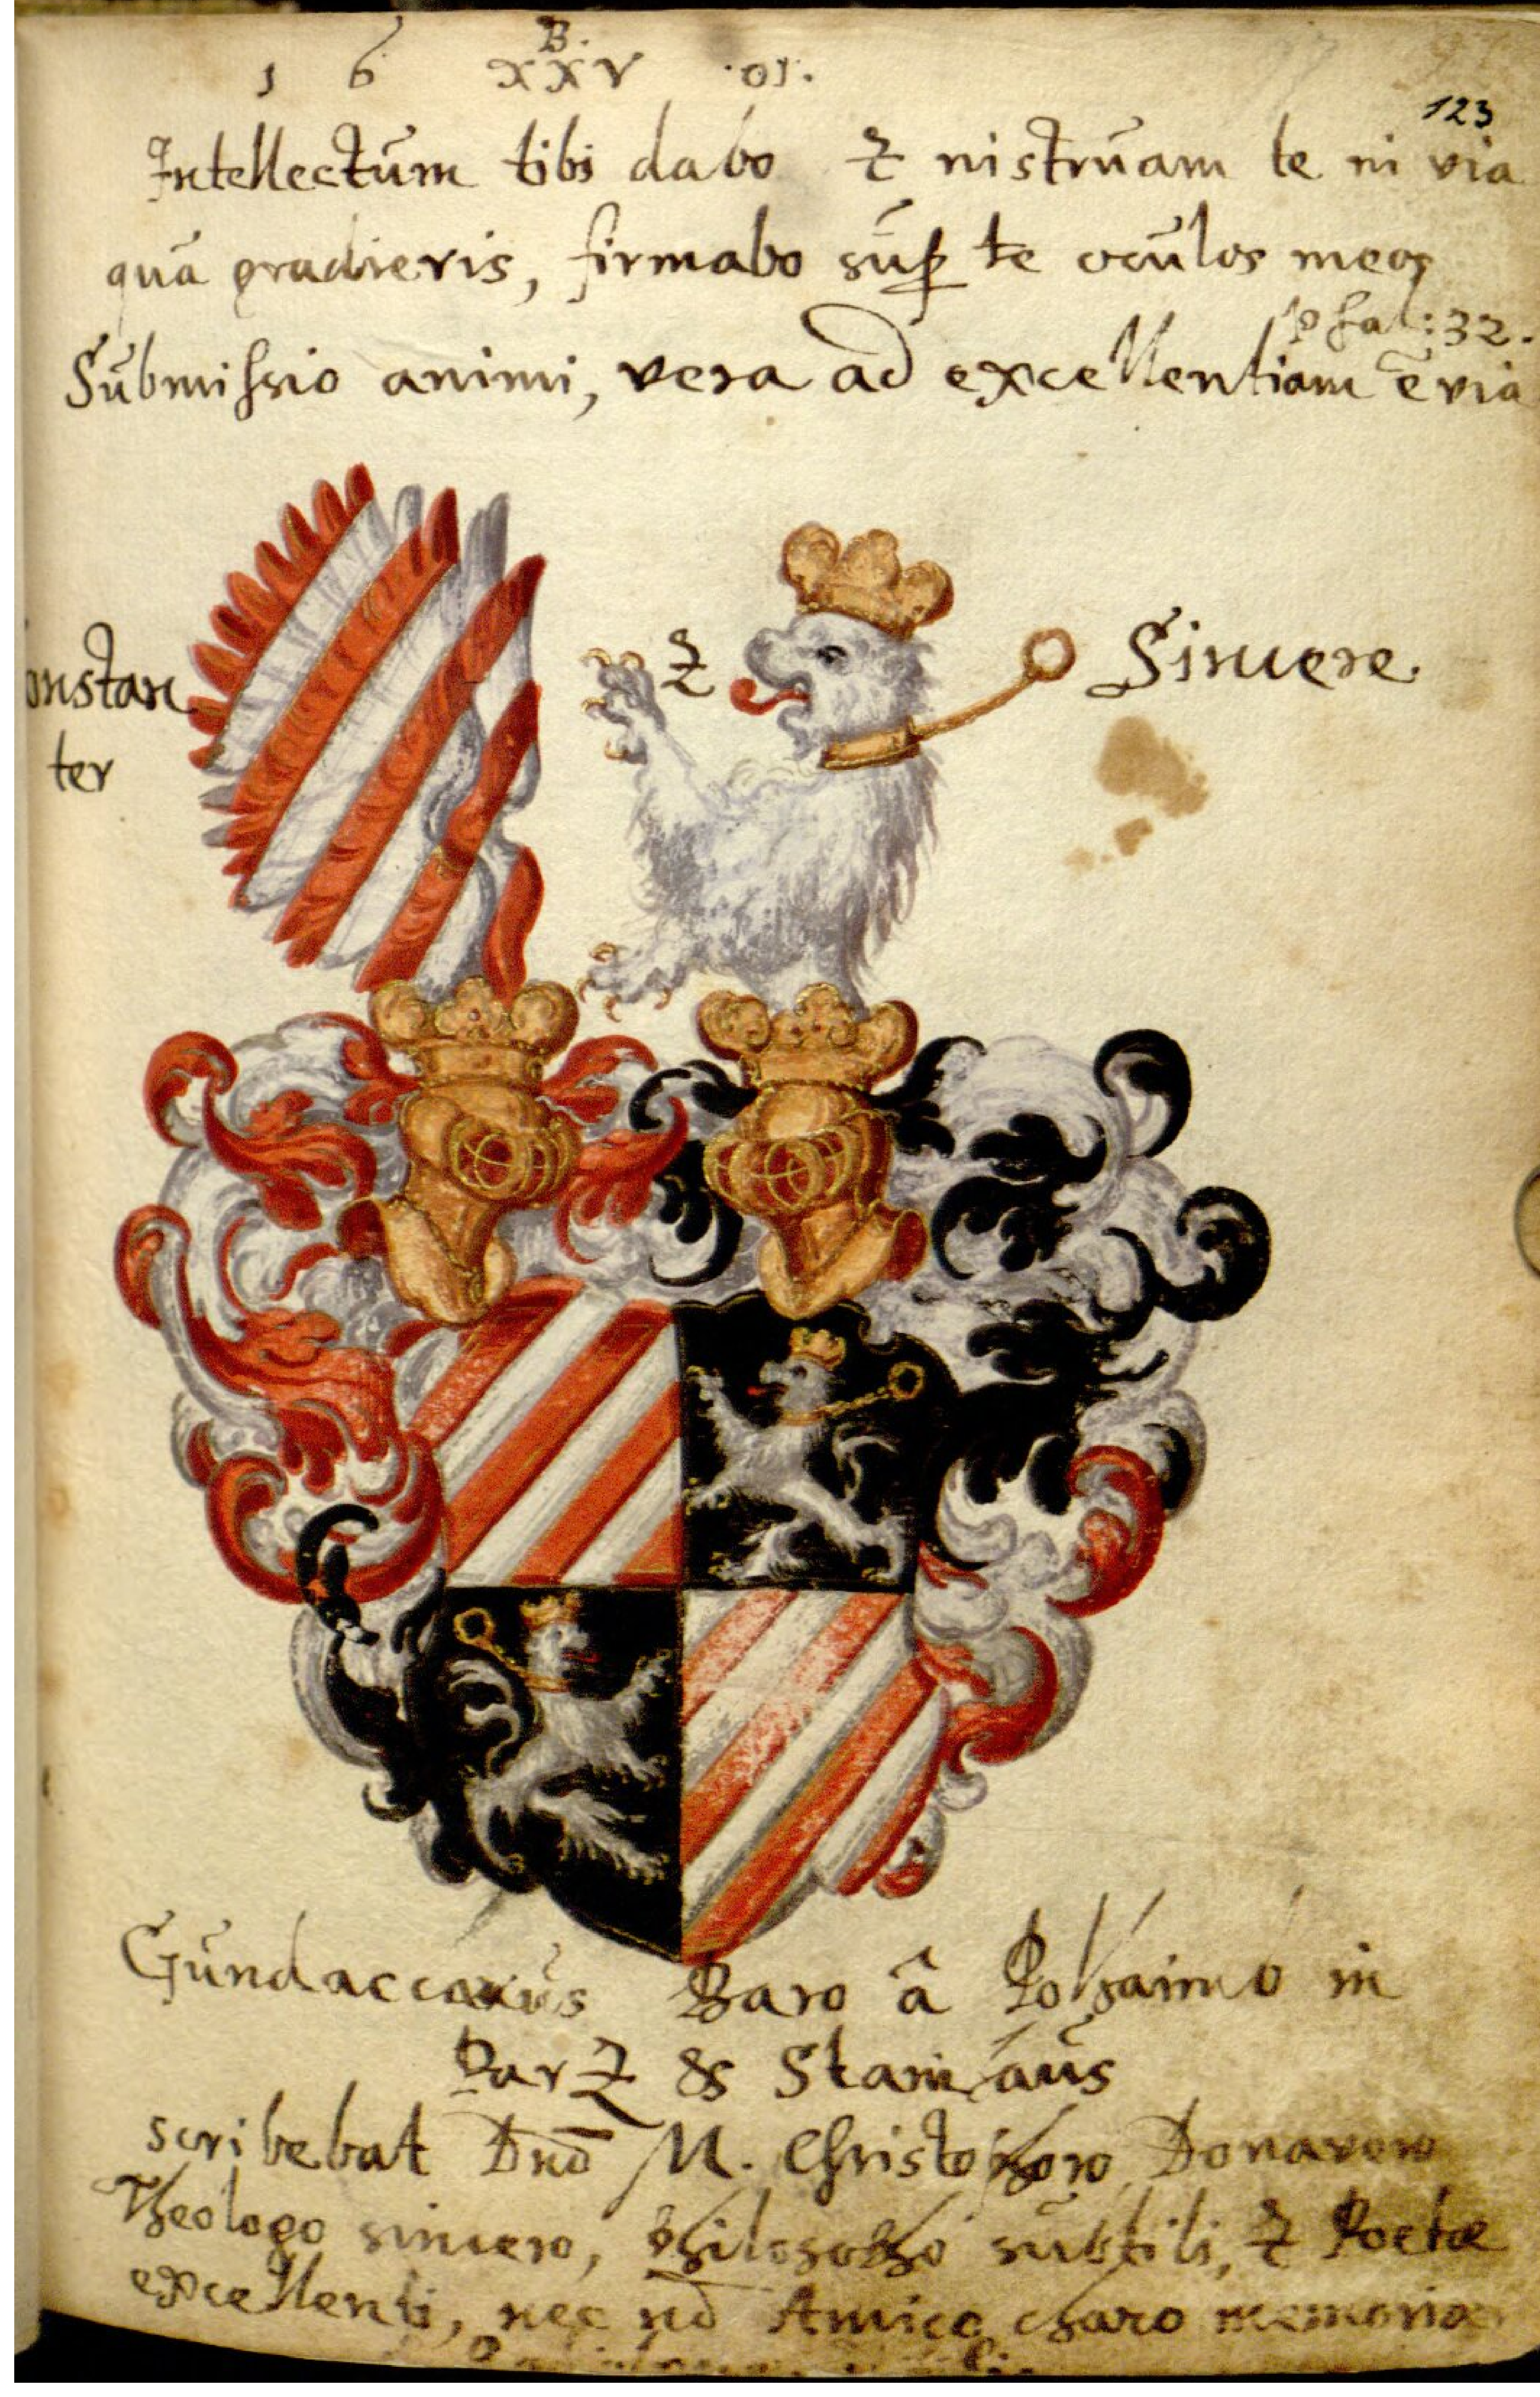 B.
1 6 XXV ·01·
123
Intellectum tibi dabo & instruam te in via
qua gradieris, firmabo sup te oculos meos
Psal: 32.
Submissio animi, vera ad excellentiam ē via
onstan & Sincere.
ter
Gundaccarus Baro â Polhaimb in
Parz &
scribebat Dnō M. Christophoro Donavero
Theologo sincero, philosopho subtili, & Poetæ
excellenti, nec nō Amico charo memoriæ